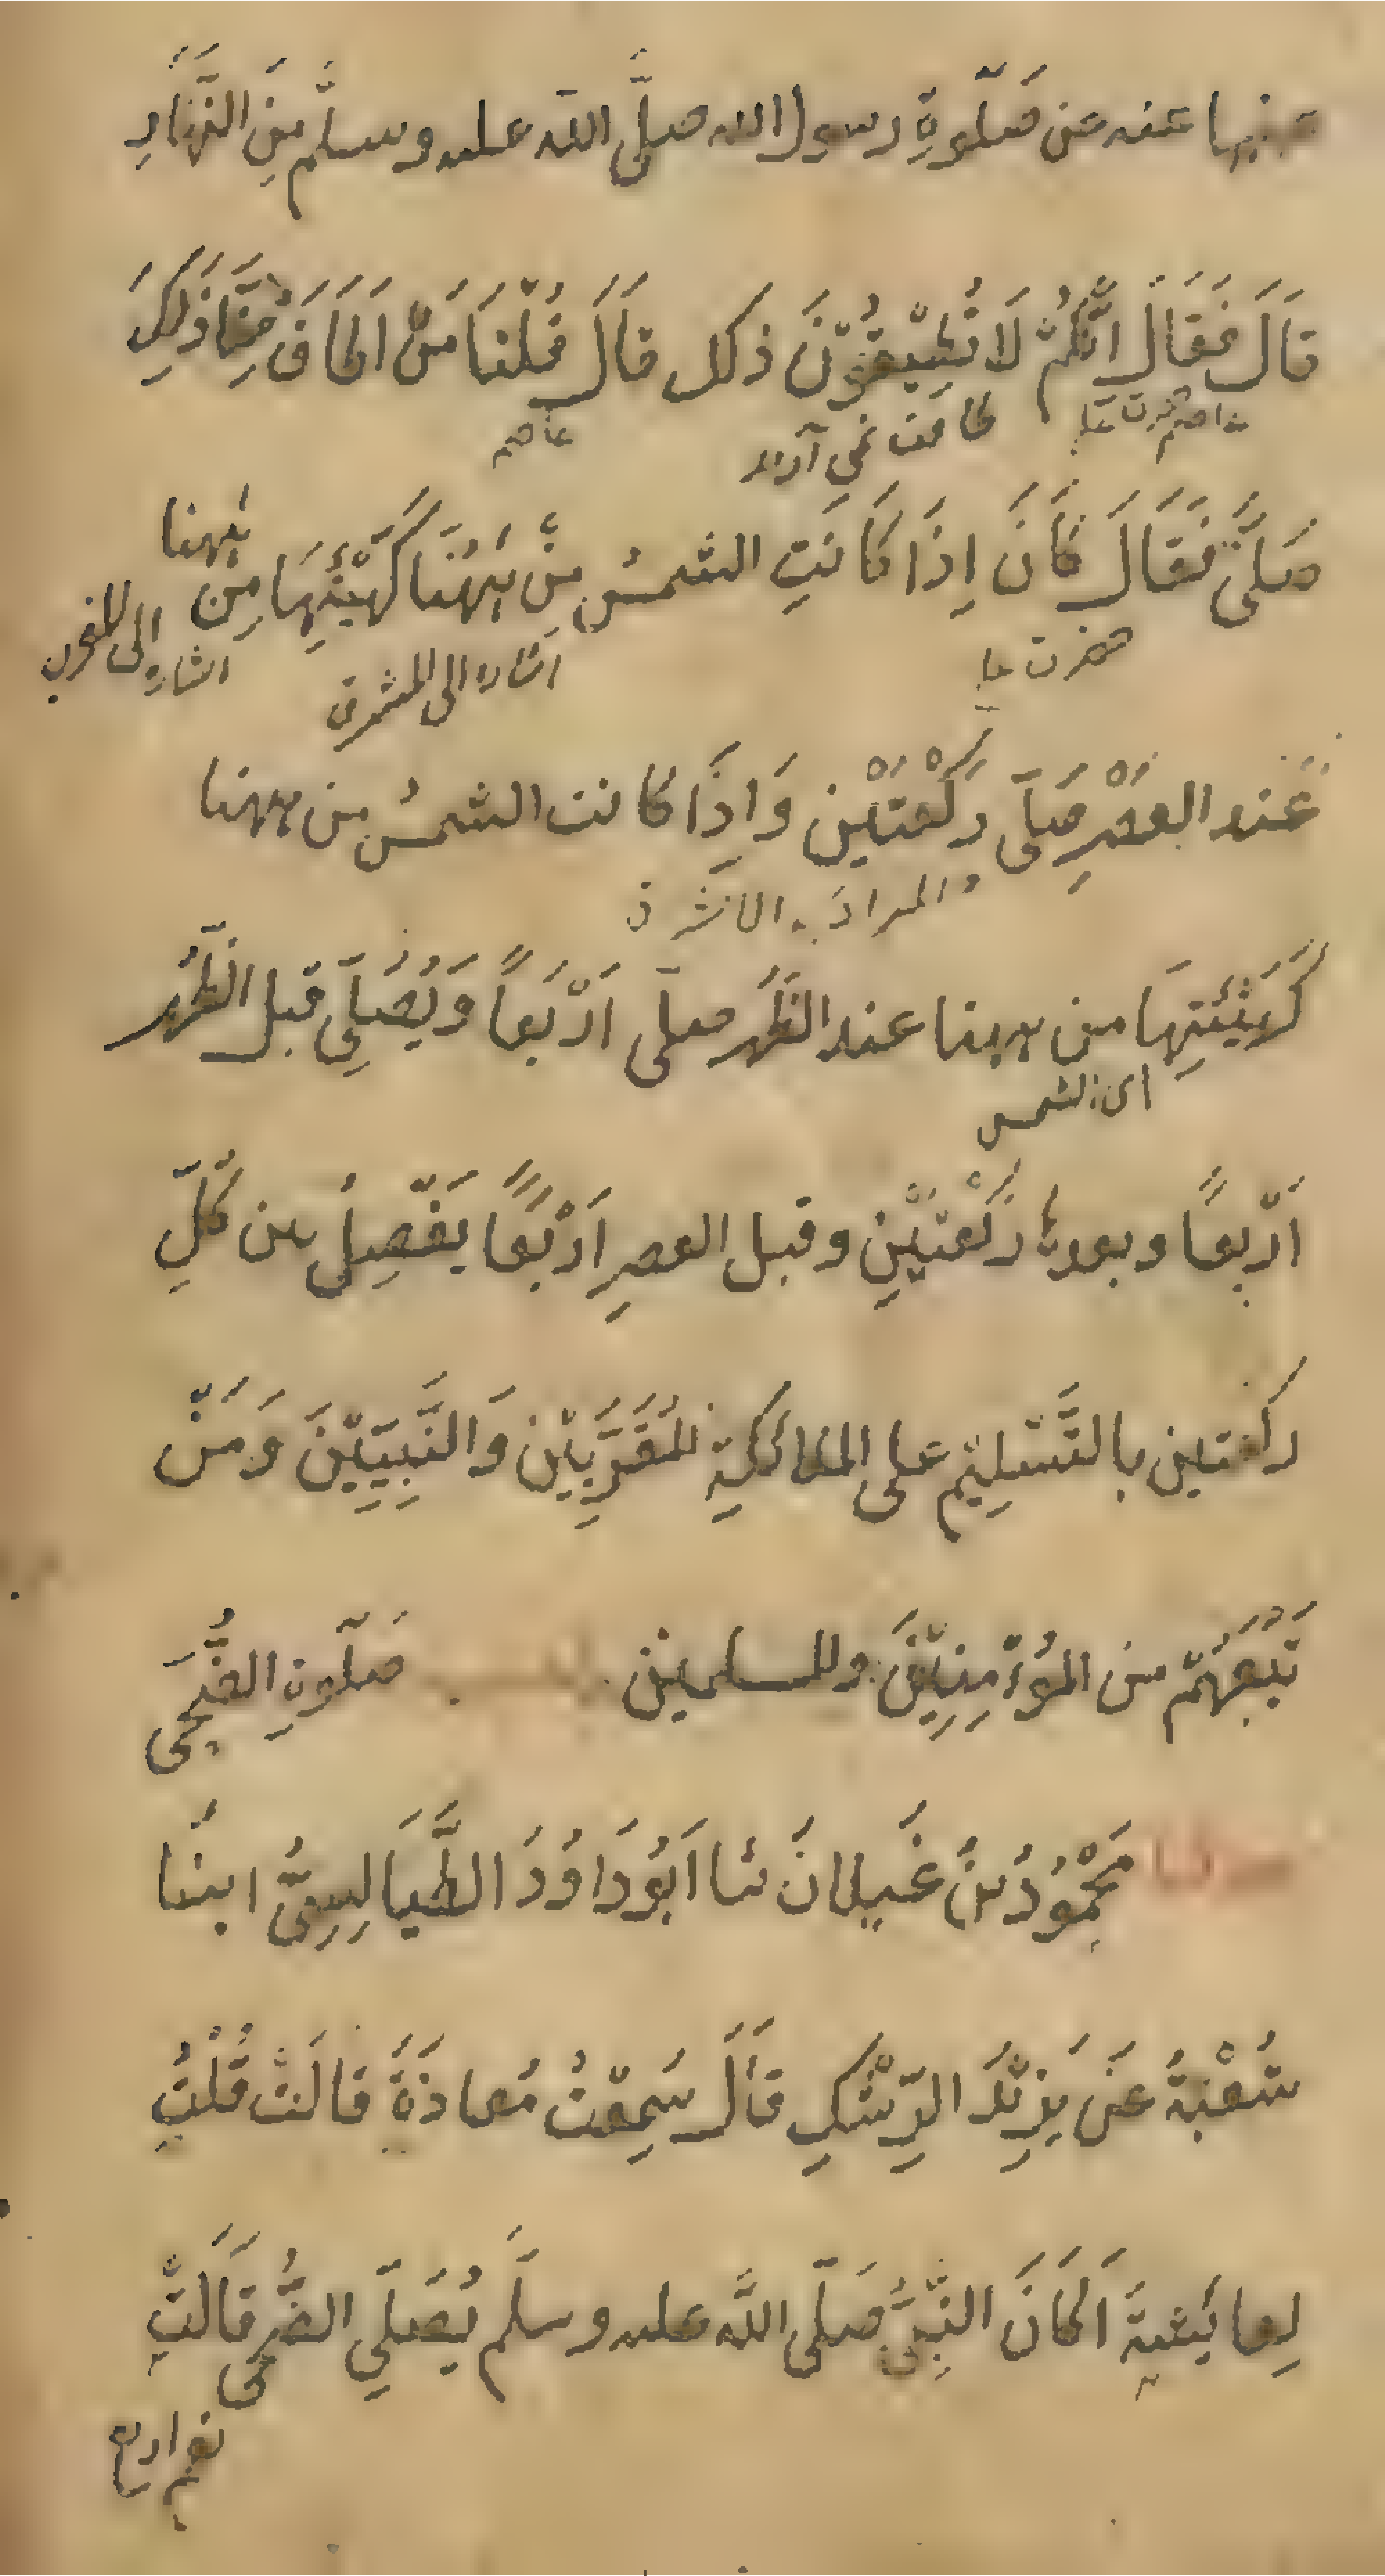 عنها عنه عن صَلٰوةِ رسول الله صلَّى الله عليه وسلَّم مِنَ النَّهَارِ
قَالَ فَقَالَ اِنَّكُمْ لَا تُطِيْقُوْنَ ذلك قَالَ قُلْنَا مَنْ اَطَاقَ مِنَّا ذَلِكَ
طاقت نمی آرند
عاصم
صَلَّى فَقَالَ كَانَ اِذَا كَانَتِ الشمسُ مِنْ هٰهُنَا كَهَيْئَتِهَا مِنْ هٰهنا
حضرت على
اشاره الى المشرق
اشاره الى المغرب
عِنْد العَصْرِ صَلّى رَكْعَتَيْنِ وَاِذَا كانت الشمسُ من ههنا
والمراد به المشرق
كَهَيْئَتِهَا من ههنا عند الظُّهر صلّى اَرْبَعاً وَيُصَلِّى قبل الظُّهر
اى الشمس
اَرْبعًا وبعدها رَكْعَتَيْنِ وقبل العصرِ اَرْبَعًا يَفْصِلُ بين كُلِّ
ركعتين بالتَّسْلِيْمِ على الملائكةِ المُقَرَّبِيْنَ وَالنَّبِيِّيْنَ وَمَنْ
تَبِعَهُمْ من المُؤْمِنِيْنَ والمسلمين صَلٰوةِ الضُّحَى
حدثنا مَحْمُوْدُ بْنُ غَيلانَ ثنا اَبُوْ دَاوُدَ الطَّيَالِسِىُّ انبنَا
شُعْبَةُ عَنْ يَزِيْدَ الرِّشْكِ قَالَ سَمِعْتُ مُعاذَةَ قالَتْ قُلْتُ
لِعائِشةَ اَكَانَ النَّبِىُّ صَلّى اللّٰه عليه وسلَّم يُصَلِّي الضُّحَى قَالَتْ
نعم اربع